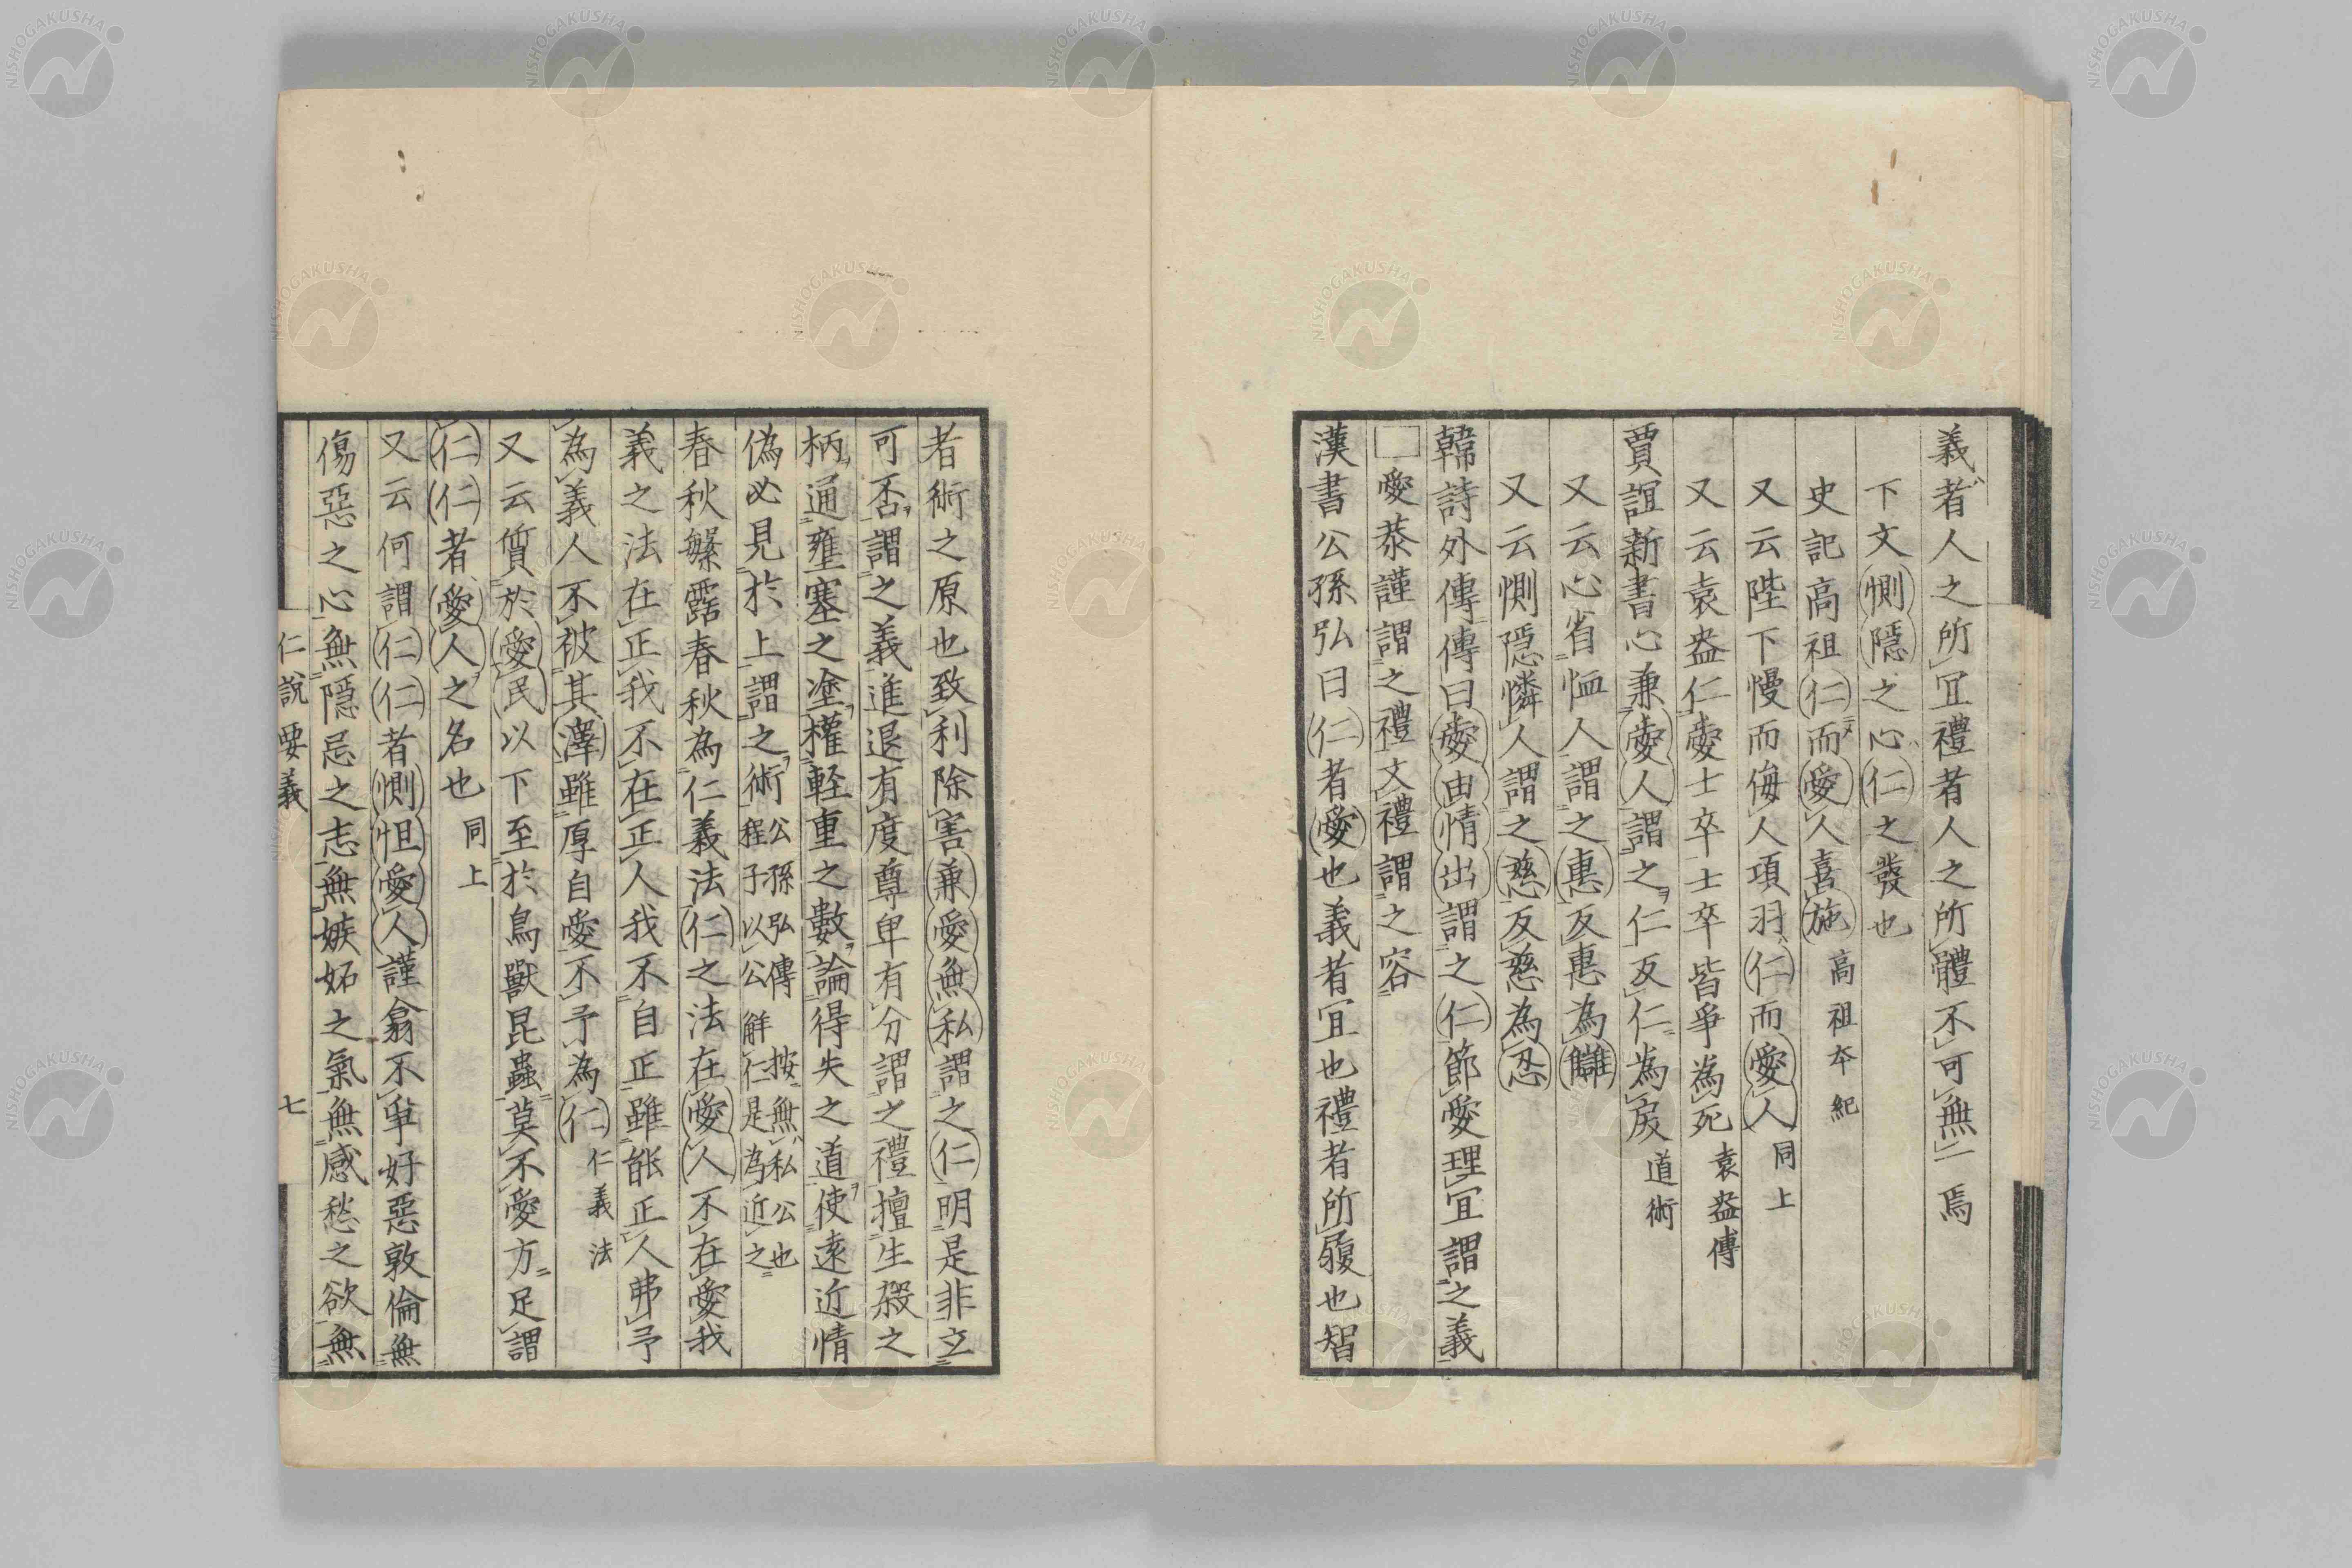 義者人之所宜禮者人之所體不可無一焉
下文惻隱之心仁之發也
史記高祖仁而愛人喜施 高祖本紀
又云陛下慢而侮人項羽仁而愛人 同上
又云袁盎仁愛士卒士卒皆爭為死 袁盎傳
賈誼新書心兼愛人謂之仁反仁為戾 道術
又云心省恤人謂之惠反惠為讎
又云惻隱憐人謂之慈反慈為忍
韓詩外傳傳曰愛由情出謂之仁節愛理宜謂之義
□愛恭謹謂之禮文禮謂之容
漢書公孫弘曰仁者愛也義者宜也禮者所履也智
者術之原也致利除害兼愛無私謂之仁明是非立
可否謂之義進退有度尊卑有分謂之禮擅生殺之
柄通壅塞之塗權輕重之數論得失之道使遠近情
偽必見於上謂之術 公孫弘傳 按無私公也
程子以公解仁是為近之
春秋繁露春秋為仁義法仁之法在愛人不在愛我
義之法在正我不在正人我不自正雖能正人弗予
為義人不被其澤雖厚自愛不予為仁 仁義法
又云質於愛民以下至於鳥獸昆蟲莫不愛方足謂
仁仁者愛人之名也 同上
又云何謂仁仁者惻怛愛人謹翕不爭好惡敦倫無
傷惡之心無隱忌之志無嫉妬之氣無感愁之欲無
仁說要義 七
NISHOGAKUSHA